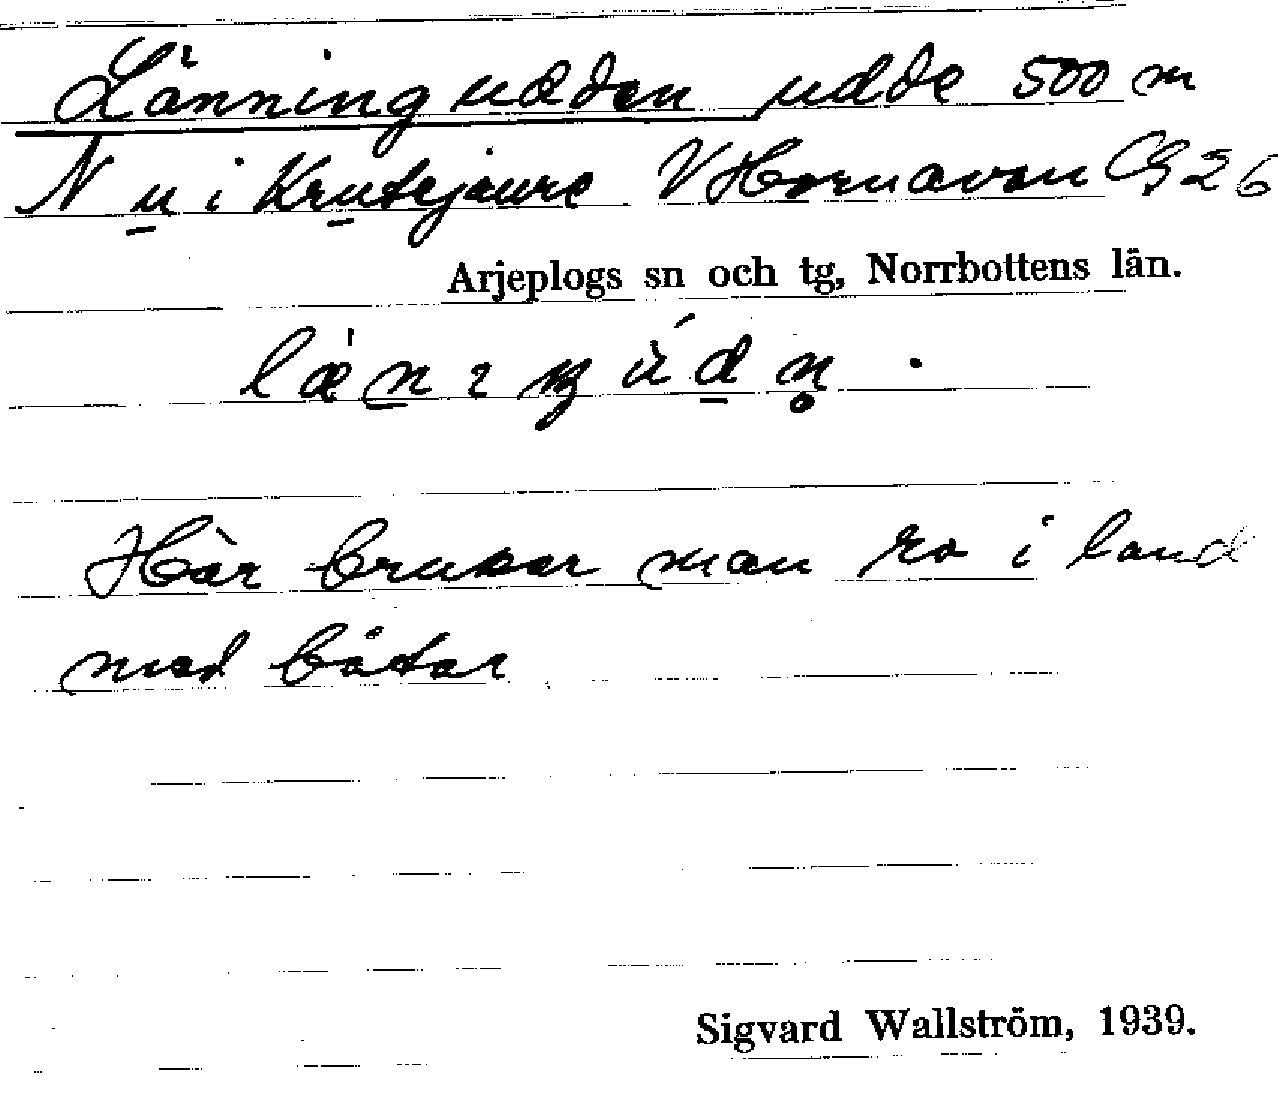 Länningudden udde 500 m
N u i Krutsjaure V Hornavan G 26
Arjeplogs sn och tg, Norrbottens län.
Här brukar man ro i land
med båtar
Sigvard Wallström, 1939.